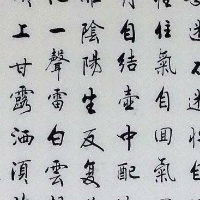 迷不迷性自
住氣自回氣
自結壺中配
離陰陽生反复
化一聲雷白雲
上甘露洒須